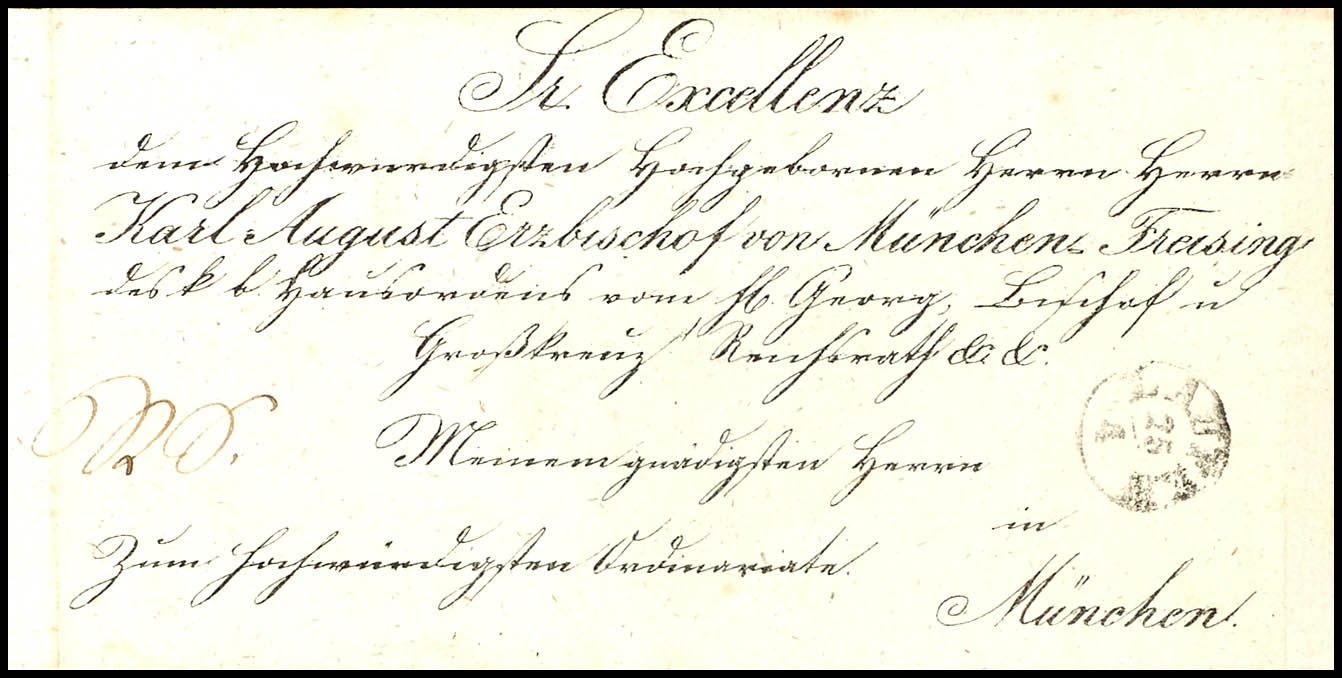 Sr. Excellenz
dem Hochwürdigsten Hochgebornen Herrn Herrn
Karl August Erzbischof von München-Freising
des k b. Hausordens vom hl. Georg, Bischof u
Großkreuz Reichsrath &c. &c.
R. S.
Meinem gnädigsten Herrn
in
Zum hochwürdigsten Ordinariate.
München.
25